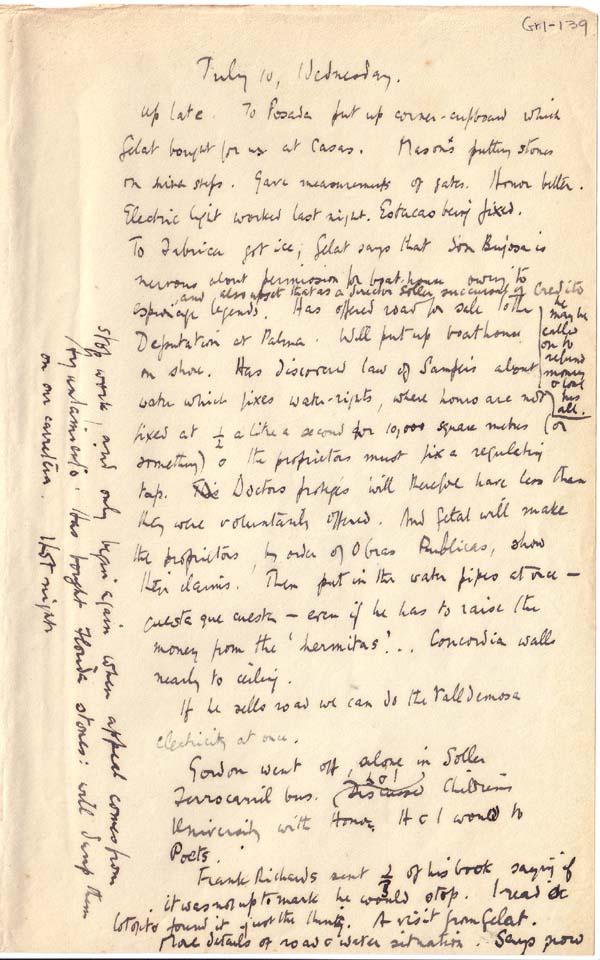 GrI-139
July 10, Wednesday.
up late. To Posada put up corner-cupboard which
Gelat bought for us at Casas. Masons putting stones
on mina steps. Gave measurements of gates. Honor better.
Electric light worked last night. Estacas being fixed.
To Fabrica got ice; Gelat says that Don Bujosa is
nervous about permission for boat-house owing to
and also upset that as a director Soller, succursal of Credito
espionage legends. Has offered road for sale to the
he may be called on to refund money & lose his all.
Deputation at Palma. Will put up boathouse
on shore. Has discovered law of Sampers about
water which fixes water-rights, where hours are not
fixed at ½ a litre a second for 10,000 square metres (or
something) & the proprietors must fix a regulating
tap. Doctors protegés will therefore have less than
they were voluntarily offered. And Gelat will make
the proprietors, by order of Obras Publicas, show
their claims. Then put in the water pipes at once —
cuesta que cuesta — even if he has to raise the
money from the 'hermitas'... Concordia walls
nearly to ceiling.
If he sells road we can do the Valldemosa
electricity at once.
Gordon went off, alone in Soller
Ferrocarril bus. (Discussed Children's
University with Honor, H & I would to
Poets.
Frank Richards sent 2/3 of his book saying if
it was not up to mark he would stop. I read &
found it just the thing. A visit from Gelat.
More details of road & water situation. Says
stop work, and only begin again when appeal comes from
Ayuntamiento. Has bought Honda stones: will dump them
on our carretera. Hot night